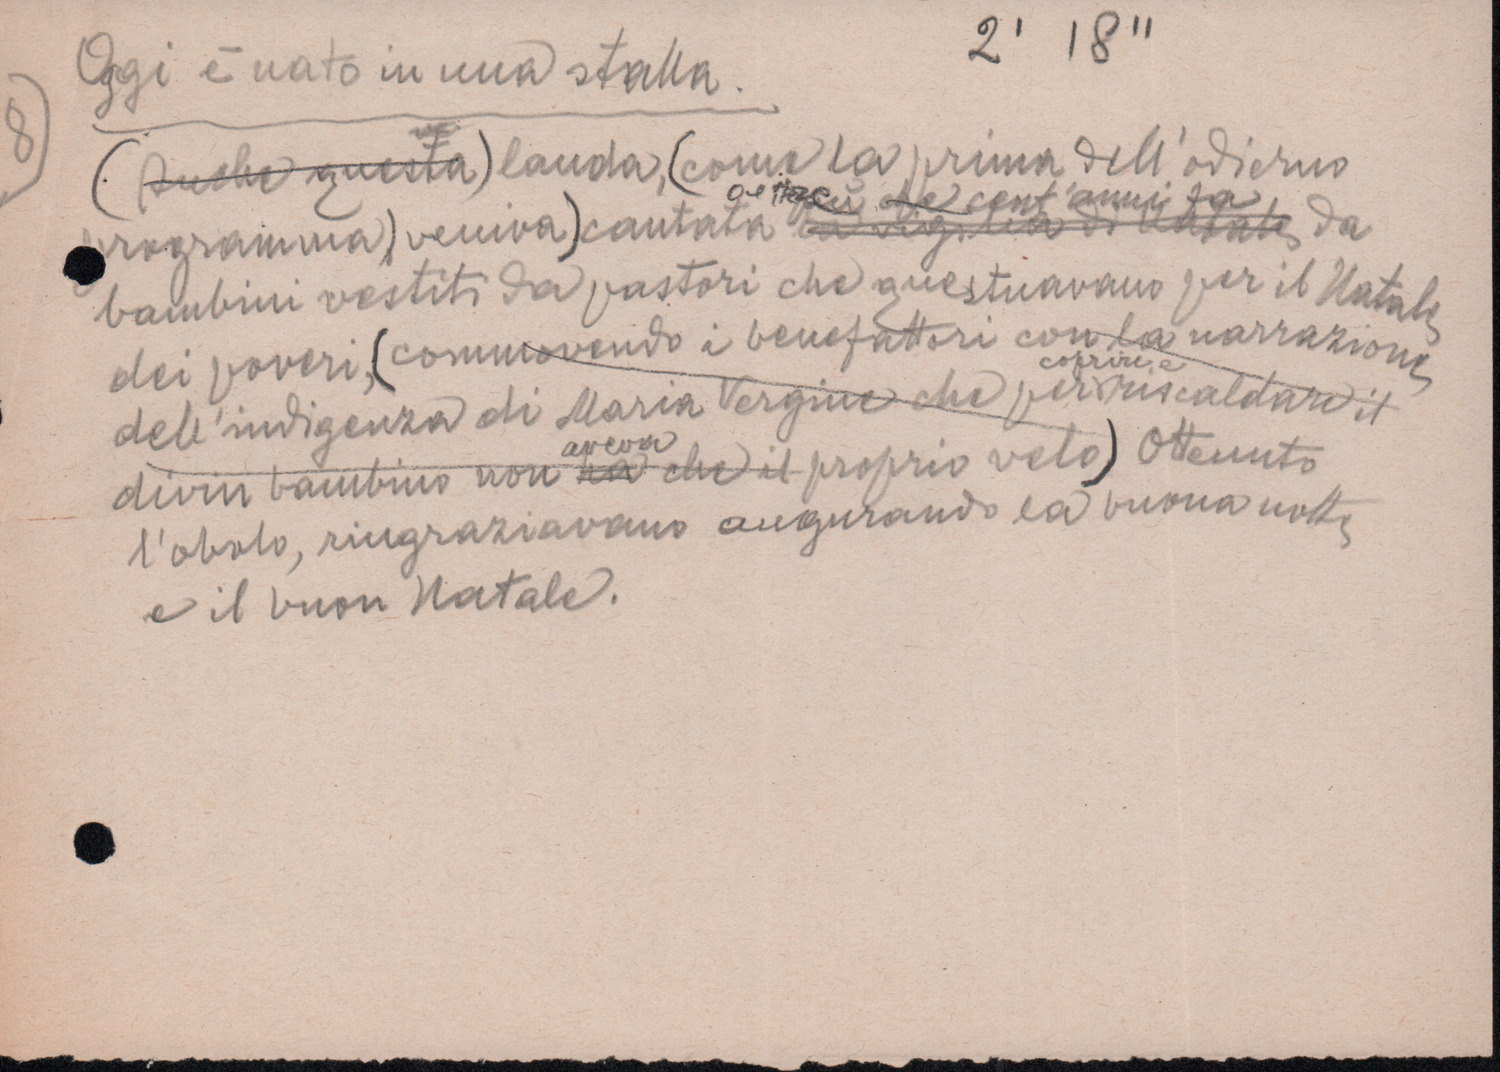 2' 18"
Oggi è nato in una stalla.
8)
(Anche questa) lauda, (come la prima dell'odierno
più di cent'anni fa
programma) veniva) cantata la vigilia di Natale, da
bambini vestiti da pastori che questuavano per il Natale
dei poveri, (commovendo i benefattori con la narrazione
coprire e
dell'indigenza di Maria Vergine che per riscaldare il
aveva
divin bambino non ha che il proprio velo) Ottenuto
l'obolo, ringraziavano augurando la buona notte
e il buon Natale.